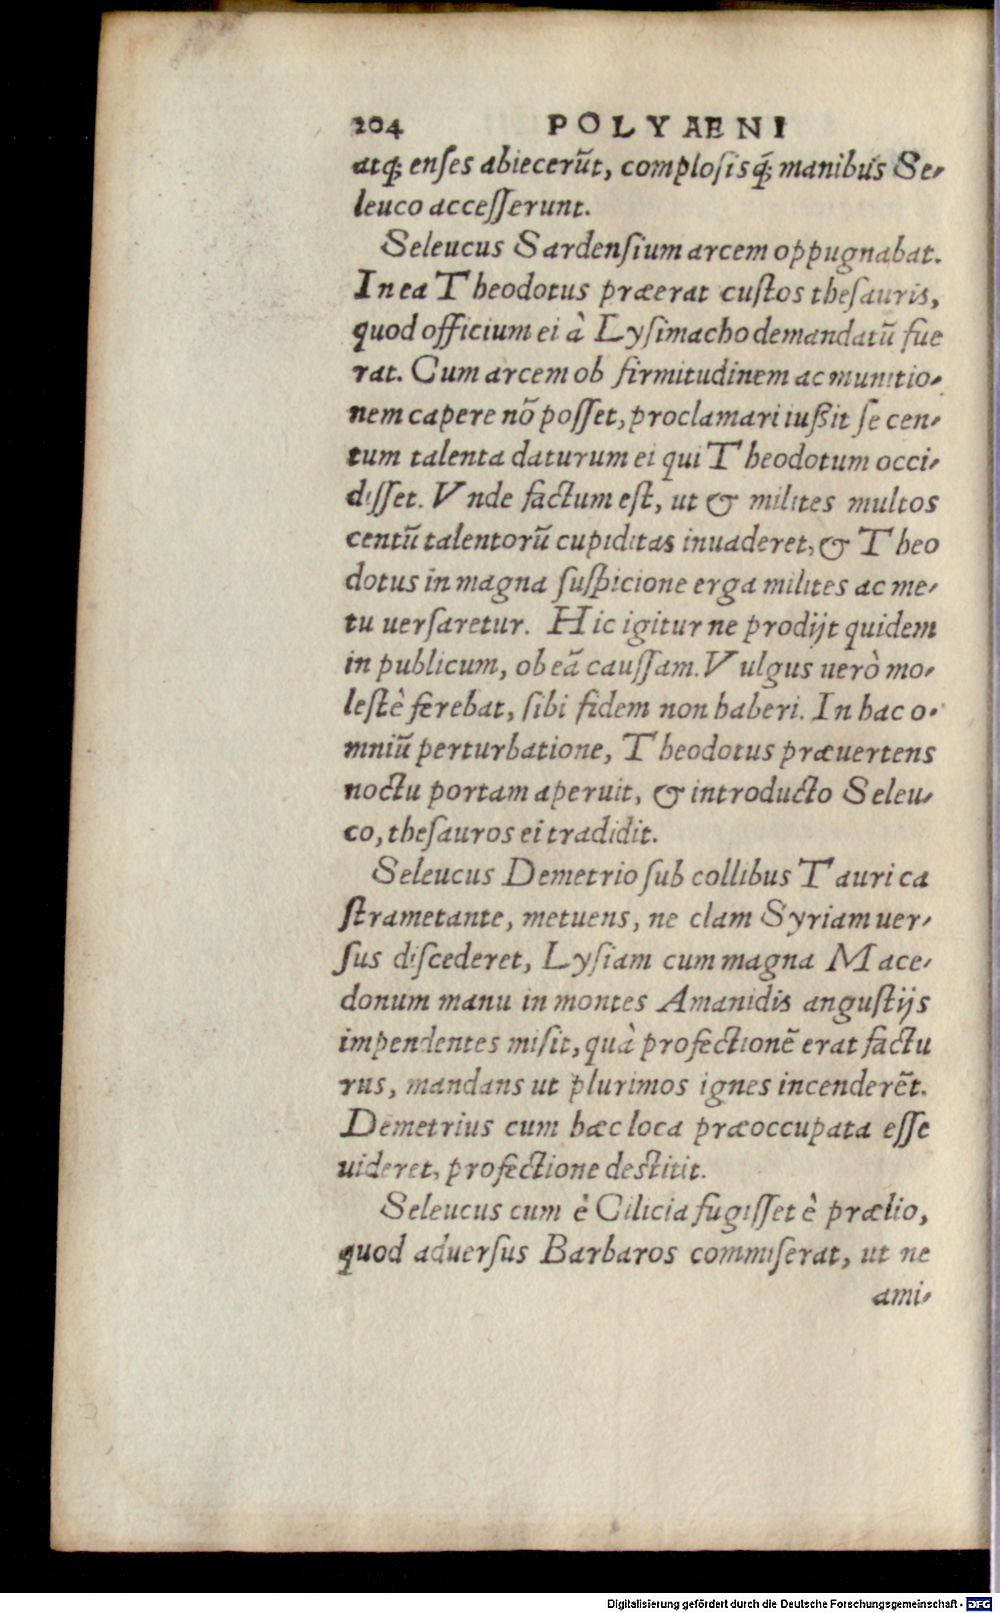 204 POLYAENI
atq́; enses abiecerũt, complosisq́; manibus Se-
leuco accesserunt.
Seleucus Sardensium arcem oppugnabat.
In ea Theodotus præerat custos thesauris,
quod officium ei à Lysimacho demandatũ fue
rat. Cum arcem ob firmitudinem ac munitio-
nem capere nõ posset, proclamari iußit se cen-
tum talenta daturum ei qui Theodotum occi-
disset. Vnde factum est, ut & milites multos
centũ talentorũ cupiditas inuaderet, & Theo
dotus in magna suspicione erga milites ac me-
tu uersaretur. Hic igitur ne prodijt quidem
in publicum, ob eã caussam. Vulgus uerò mo-
lestè ferebat, sibi fidem non haberi. In hac o-
mniũ perturbatione, Theodotus præuertens
noctu portam aperuit, & introducto Seleu-
co, thesauros ei tradidit.
Seleucus Demetrio sub collibus Tauri ca
strametante, metuens, ne clam Syriam uer-
sus discederet, Lysiam cum magna Mace-
donum manu in montes Amanidis angustijs
impendentes misit, quà profectionẽ erat factu
rus, mandans ut plurimos ignes incenderẽt.
Demetrius cum hæc loca præoccupata esse
uideret, profectione destitit.
Seleucus cum è Cilicia fugisset è prælio,
quod aduersus Barbaros commiserat, ut ne
ami-
Digitalisierung gefördert durch die Deutsche Forschungsgemeinschaft - DFG